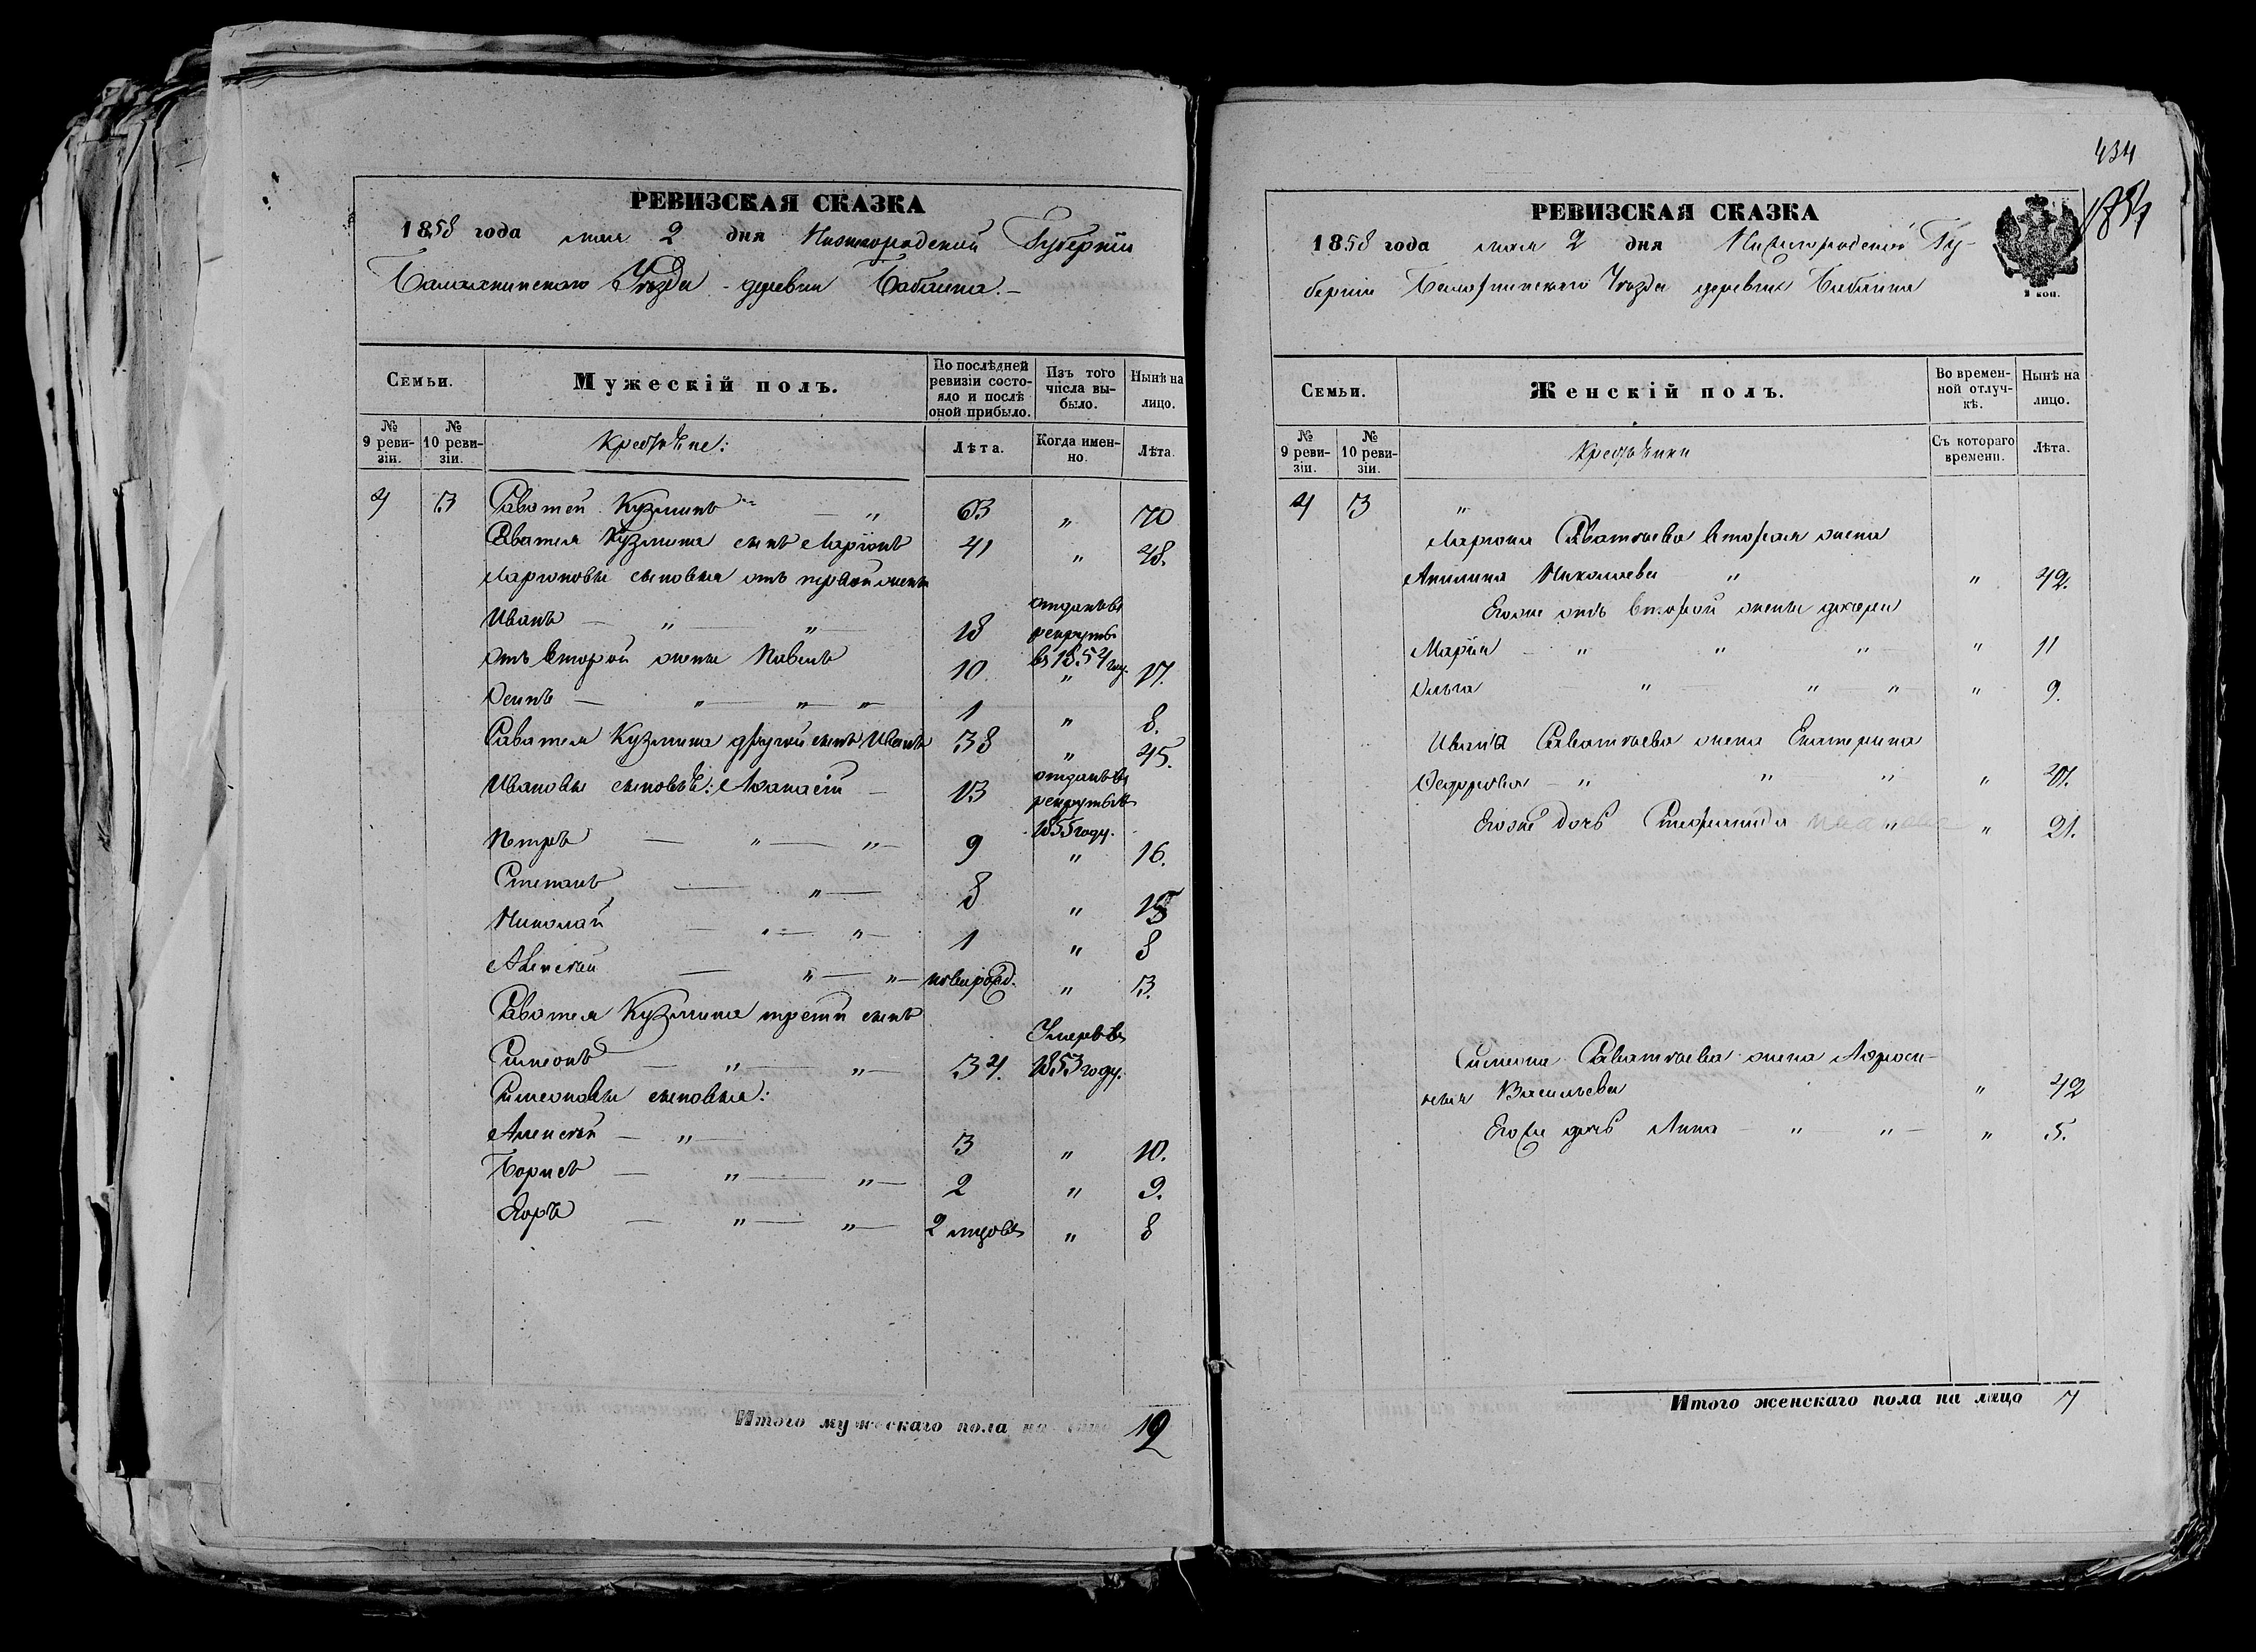 РЕВИЗСКАЯ СКАЗКА
1858 года мая 2 дня Нижегородской Губернiи
Балахнинского Уѣзда деревни Бабаина.
Семьи.
Мужескiй полъ.
По послѣдней ревизiи состояло и послѣ оной прибыло.
Изъ того числа выбыло.
Нынѣ на лицо.
№ 9 ревизiи.
№ 10 ревизiи.
Крестьяне:
Лѣта.
Когда именно.
Лѣта.
4 3 Саватей Кузминъ " 63 " 70
Саватея Кузмина сынъ Ларiонъ 41 " 48.
Ларiоновы сыновья отъ первой жены
Иванъ " " 18 отданъ въ рекруты въ 1854 году.
отъ второй жены Павелъ 10. " 17.
Осипъ " " " 1 " 8.
Саватея Кузмина другой сынъ Иванъ 38 " 45.
Ивановы сыновья: Афанасiй 13 отданъ въ рекруты въ 1855 году.
Петръ " " 9 " 16.
Степанъ " 8 " 15
Николай " " 1 " 8
Алексѣй " " новорожд. " 3.
Саватея Кузмина третiй сынъ
Симеонъ " " 34. Умеръ въ 1853 году.
Симеоновы сыновья:
Алексѣй " 3 " 10.
Борисъ " " 2 " 9.
Егоръ " " 2 мѣсяцовъ " 8
Итого мужескаго пола на лицо 12
434
РЕВИЗСКАЯ СКАЗКА
1858 года мая 2 дня Нижегородской Гу-
бернiи Балахнинскаго Уѣзда деревни Бабаина
Семьи.
Женскiй полъ.
Во временной отлучкѣ.
Нынѣ на лицо.
№ 9 ревизiи.
№ 10 ревизiи.
Крестьянки
Съ котораго времени.
Лѣта.
4 3 "
Ларiона Саватѣева вторая жена
Акилина Николаева " " 42.
Его же отъ второй жены дочери
Марiя " " " " 11
Ольга " " " " 9.
Ивана Саватѣева жена Екатерина
Федорова " " " "
Его же дочь Степанида " " 21.
Симеона Саватѣева жена Афрось-
Васильева " 42
Его же дочь Анна " " " 5.
Итого женскаго пола на лицо 7